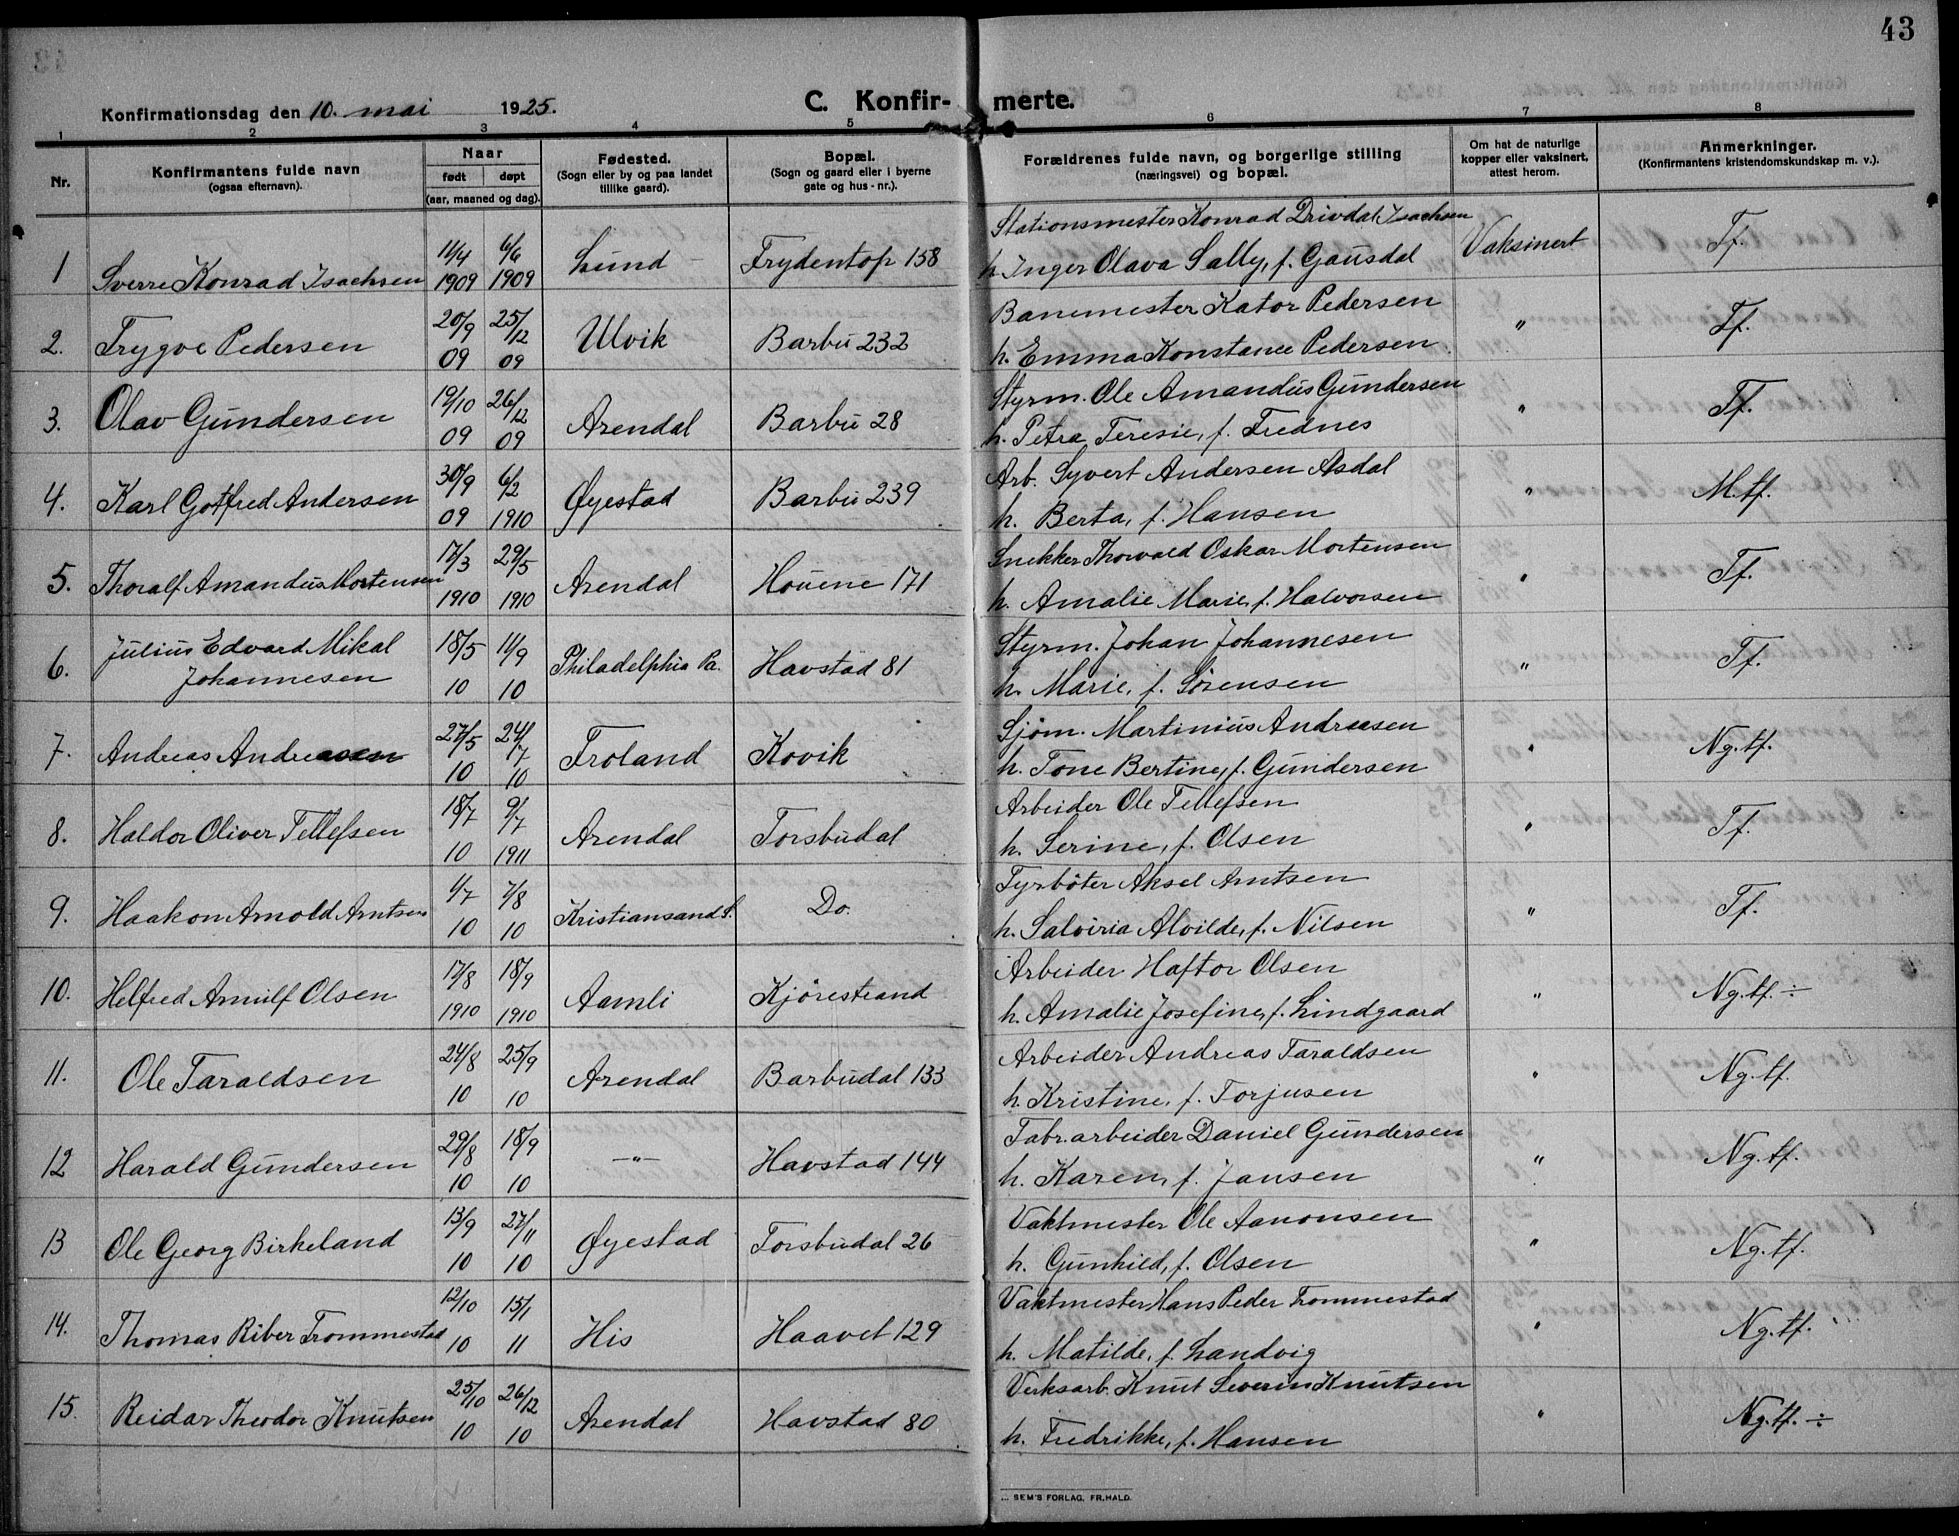 43
Konfirmationsdag den 10. mai 1925.
C. Konfir- merte.
1 2 3 4 5 6 7 8
Nr.
Konfirmantens fulde navn
(ogsaa efternavn).
Naar
født døpt
(aar, maaned og dag).
Fødested.
(Sogn eller by og paa landet
tillike gaard).
Bopæl.
(Sogn og gaard eller i byerne
gate og hus-nr.).
Forældrenes fulde navn, og borgerlige stilling
(næringsvei) og bopæl.
Om hat de naturlige
kopper eller vaksinert,
attest herom.
Anmerkninger.
(Konfirmantens kristendomskundskap m. v.).
Stationsmester Konrad Drivdal Isachsen
1 Sverre Konrad Isachsen 11/4 1909 6/6 1909 Lund Frydentop 158 h. Inger Olava Sally, f. Gausdal Vaksinert Tf.
Banemester Kator Pedersen
2. Trygve Pedersen 20/9 09 25/12 09 Ulvik Barbu 232 h. Emma Konstance Pedersen " Tf.
Styrm. Ole Amandus Gundersen
3. Olav Gundersen 19/10 09 26/12 09 Arendal Barbu 28 h. Petra Teresie, f. Frednes " Tf.
Arb. Syvert Andersen Asdal
4. Karl Gotfred Andersen 30/9 09 6/2 1910 Øyestad Barbu 239 h. Berta, f. Hansen " M.tf.
Snekker Thorvald Oskar Mortensen
5. Thoralf Amandus Mortensen 17/3 1910 29/5 1910 Arendal Houene 171 h. Amalie Marie, f. Halvorsen " Tf.
Julius Edvard Mikal
Styrm. Johan Johannesen
6. Johannesen 18/5 10 11/9 10 Philadelphia Pa. Havstad 81 h. Marie, f. Sørensen " Tf.
Sjøm. Martinius Andreasen
7. Andreas Andreasen 27/5 10 24/7 10 Froland Kovik h. Tone Bertine, f. Gundersen " Ng.tf.
Arbeider Ole Tellefsen
8. Haldor Oliver Tellefsen 18/7 10 9/7 1911 Arendal Torsbudal h. Serine, f. Olsen " Tf.
Fyrbøter Aksel Arntsen
9. Haakon Arnold Arntsen 1/7 10 7/8 10 Kristiansand S. Do. h. Salviria Alvilde, f. Nilsen " Tf.
Arbeider Haftor Olsen
10. Helfred Arnulf Olsen 17/8 1910 18/9 1910 Aamli Kjørestrand h. Amalie Josefine, f. Lindgaard " Ng.tf. ÷
Arbeider Andreas Taraldsen
11. Ole Taraldsen 24/8 10 25/9 10 Arendal Barbudal 133 h. Kristine, f. Torjusen " Ng.tf.
Fabr.arbeider Daniel Gundersen
12 Harald Gundersen 29/8 10 18/9 10 —"— Havstad 144 h. Karen, f. Jansen " Ng.tf.
Vaktmester Ole Aanonsen
13 Ole Georg Birkeland 13/9 10 27/11 10 Øyestad Torsbudal 26 h. Gunhild, f. Olsen " Ng.tf.
Vaktmester Hans Peder Trommestad
14. Thomas Riber Trommestad 12/10 10 15/1 11 His Haavet 129 h. Matilde, f. Landvig " Ng.tf.
Verksarb. Knut Severin Knutsen
15. Reidar Theodor Knutsen 25/10 10 26/12 10 Arendal Havstad 80 h. Fredrikke, f. Hansen " Ng.tf. ÷
SEM'S FORLAG, FR.HALD.